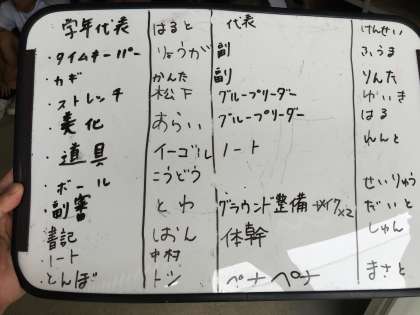 学年代表 はると 代表 けんせい
・タイムキーパー りょうが 副 ふうま
・カギ かんた 副 りんた
・ストレッチ 松下 グループリーダー ゆいき
・美化 あらい グループリーダー はる
・道具 イーゴル ノート れんと
・ボール こうどう せいりゅう
・副審 とわ グラウンド整備 →メイク×2 だいと
書記 しおん 体幹 しゅん
・ノート 中村
・とんぼ トシ ペナペナ まさと